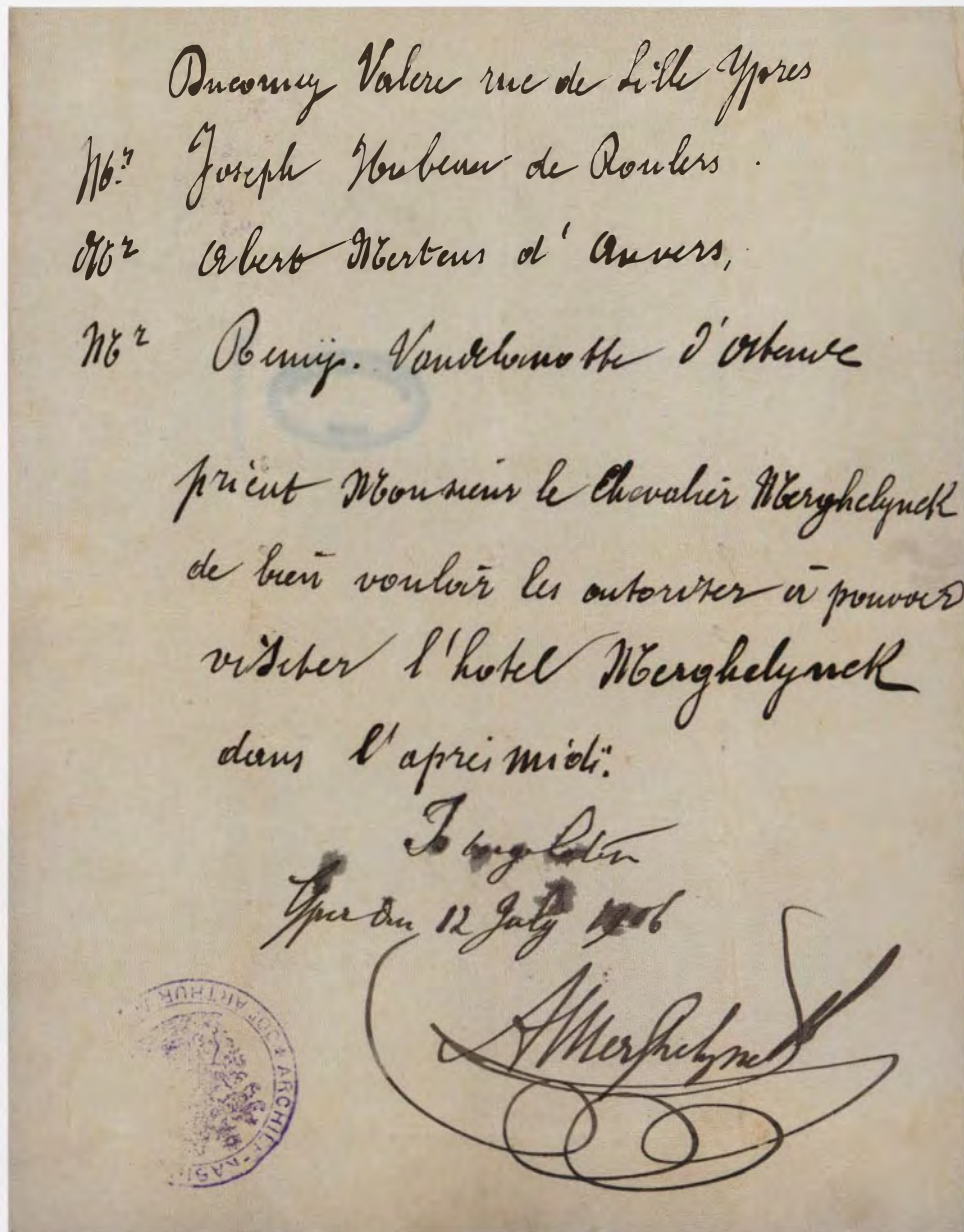 Valere rue de Lille Ypres
Mr Joseph de Roulers.
Mr Albert Mertens d' Anvers,
Mr Remÿ. Vandelanotte d'ostende
prient Monsieur le Chevalier Merghelynck
de bien vouloir les autoriser à pouvoir
visiter l'hotel Merghelynck
dans l'après midi.
Toegelaten
Yper den 12 July 1906
AMerghelynck
ARTHUR